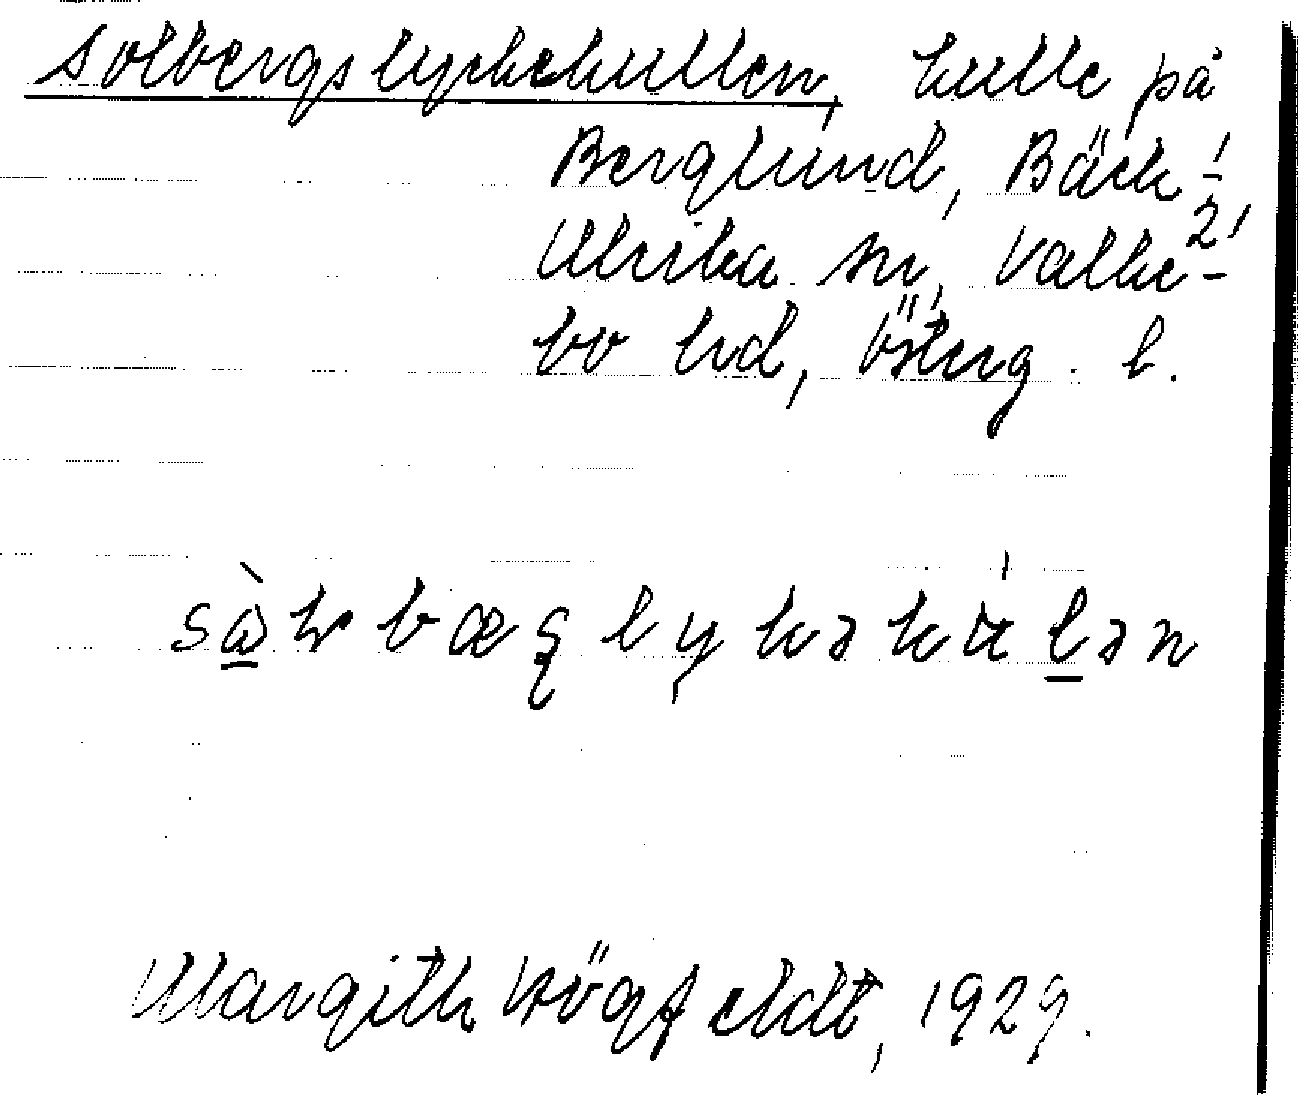 Solbergslyckekullen, kulle på
Berglund, Bäck, 1/2
Ulrika sn, Valke-
bo hd, Österg. l.
Margith Högfeldt, 1929.